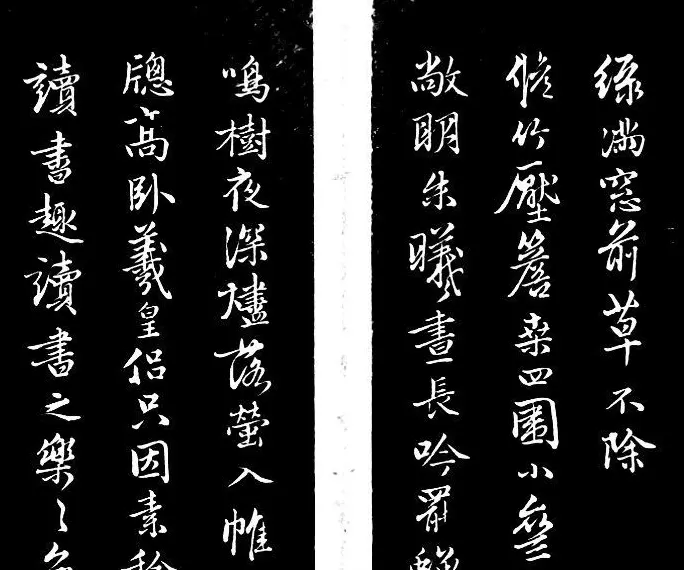 綠滿窓前草不除
脩竹壓簷桑四圍小齋
敞朗朱曦晝長吟罷蟬
鳴樹夜深燼落螢入帷
牕高臥羲皇侶只因素稔
讀書趣讀書之樂〻無